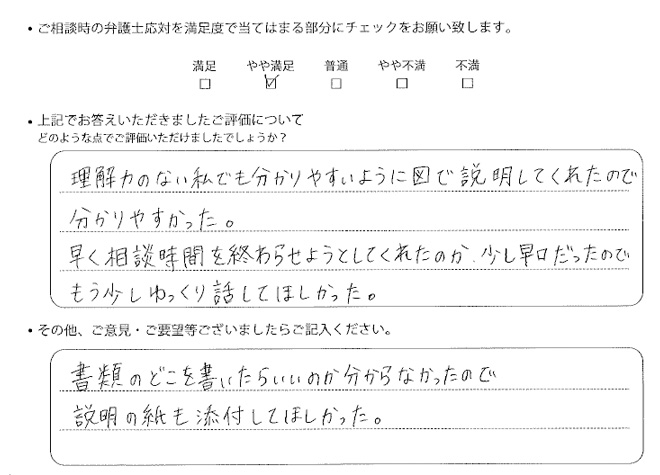 ・ご相談時の弁護士応対を満足度で当てはまる部分にチェックをお願い致します。
満足 やや満足 普通 やや不満 不満
□ ☑ □ □ □
・上記でお答えいただきましたご評価について
どのような点でご評価いただけましたでしょうか？
理解力のない私でも分かりやすいように図で説明してくれたので
分かりやすかった。
早く相談時間を終わらせようとしてくれたのか、少し早口だったので
もう少しゆっくり話してほしかった。
・その他、ご意見・ご要望等ございましたらご記入ください。
書類のどこを書いたらいいのか分からなかったので
説明の紙も添付してほしかった。